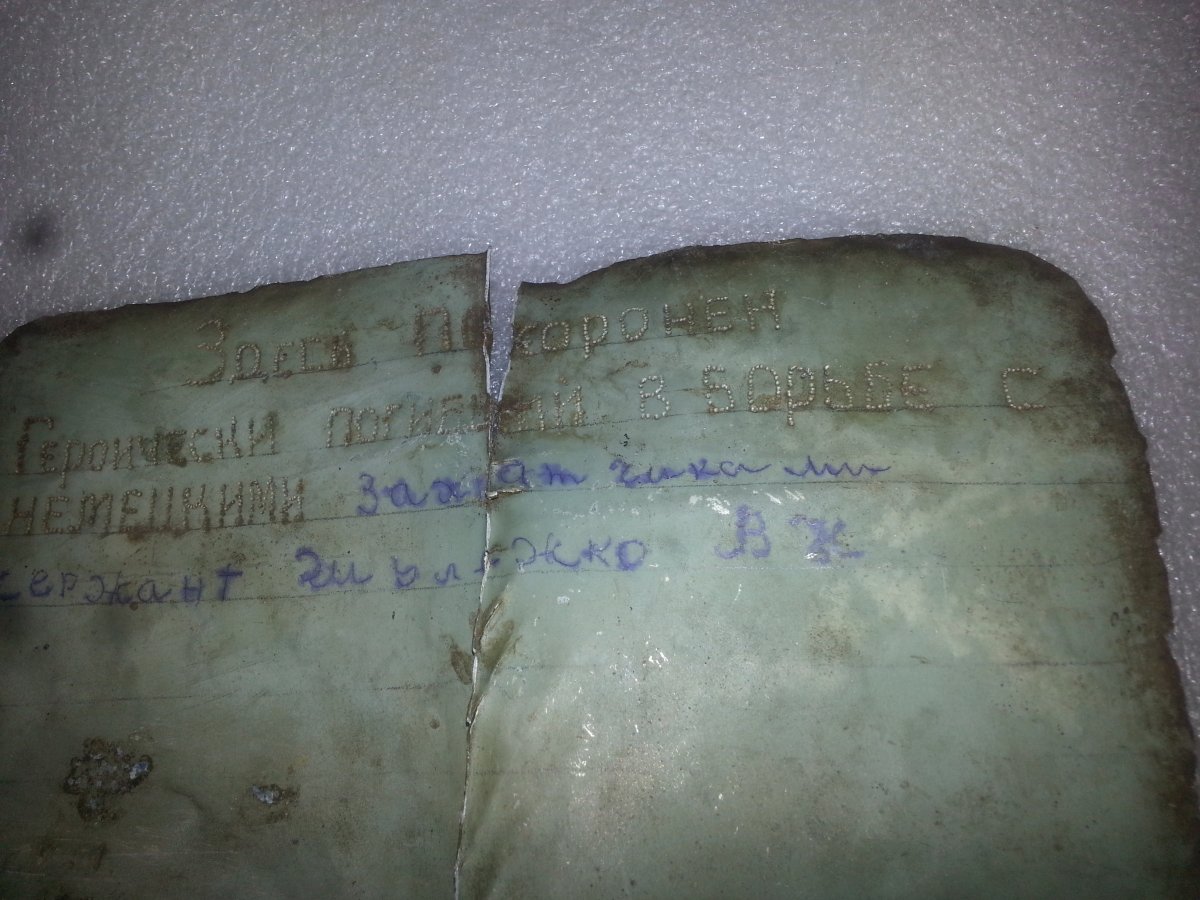 Здесь Похаронен
Героически погибший в борьбе с
немецкими захватчиками
сержант В К